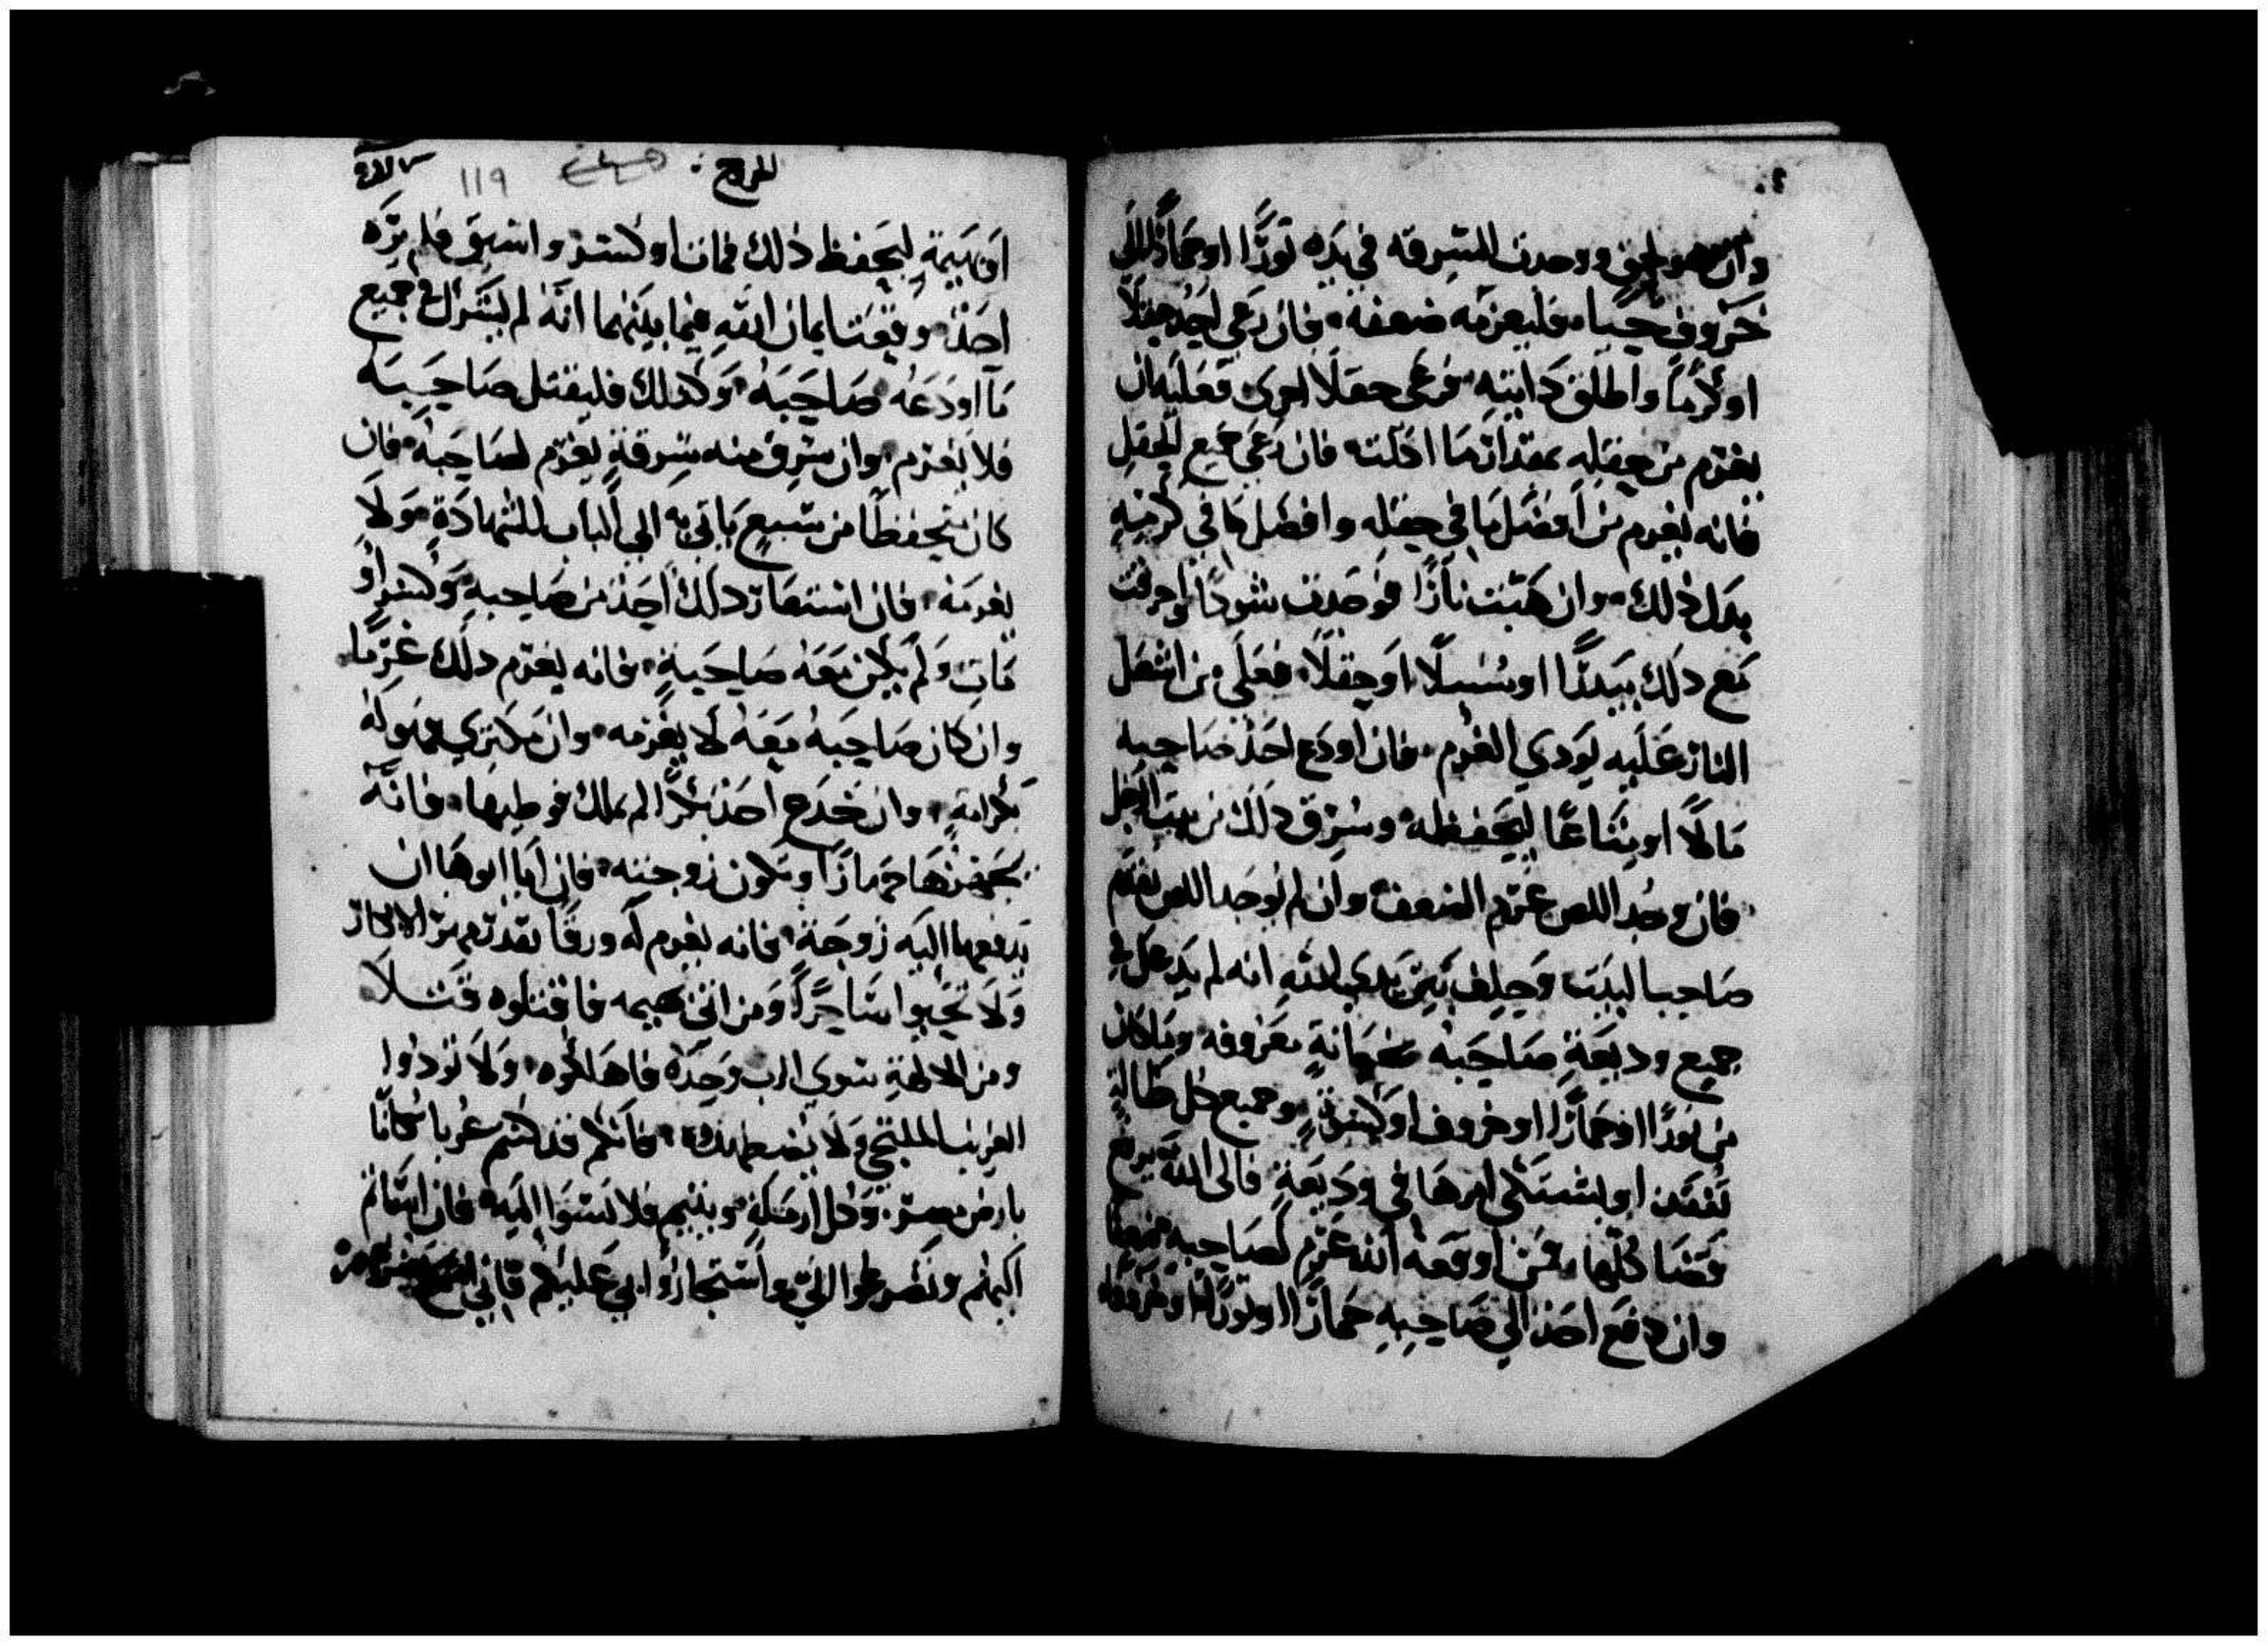 وان هو لحق ووجدت السرقه في يده ثورًا او حمارًا الى
خروف حيًا، فليغرمه ضعفه، فان رعى احد حقلًا
او كرمًا واطلق دابته ترعى حقلًا اخرى فعليه ان
يغرم من حقله بمقدار ما اكلته فان رعى جميع الحقل
فانه يغرم من افضل ما في حقله وافضل ما في كرمه
بدل ذلك، وان هبت نارًا فوجدت شوكًا واحرقت
مع ذلك بيدرًا او سنبلًا او حقلًا، فعلى من اشعل
النار عليه يودي الغرم، فان اودع احد صاحبه
مالًا او متاعًا ليحفظه وسرق ذلك من بيت الرجل
فان وجد اللص غرم الضعف وان لم يوجد اللص يقدم
صاحب البيت وحلف بين يدي الله انه لم يدغل في
جميع وديعة صاحبه بخيانة معروفه وما كان
من ثورًا او حمارًا او خروف او كسوة، وجميع كل ضالة
تفقد او يشتكى امرها في وديعة فالى الله يرفع
قضا كلها، فمن اوقعه الله غرم لصاحبه ضعفًا
وان دفع احد الى صاحبه حمارًا او ثورًا او خروفًا
للخروج ؛ 119
او بهيمة ليحفظ ذلك فمات او كسر او استبق فلم يره
احد، وتقع ايمان الله فيما بينهما انه لم يشرك في جميع
ما اودعه صاحبه، وكذلك فليقبل صاحبه
فلا يغرم، وان سرق منه سرقة يغرم لصاحبه، فان
كان يحفظًا من سبع ياتي به الى الباب للشهادة، ولا
يغرمه، فان استعار ذلك احد من صاحبه وكسر او
مات ولم يكن معه صاحبه، فانه يغرم ذلك غرمًا
وان كان صاحبه معه لا يغرمه، وان مكتري فهو له
بكراية، وان خدع احد بكرًا لم تملك فوطيها، فانه
يجهزها جهازًا وتكون زوجته، فان ابا ابوها ان
يدفعها اليه زوجة، فانه يغرم له ورقًا بقدر مهر الابكار
ولا تحيوا ساحرًا ومن اتى بهيمه فاقتلوه قتلًا
ومن الالهة سوى الرب وحده فاهلكوه، ولا توذوا
الغريب الملتجي ولا تضطهده، فانكم قد كنتم غربا سكانًا
بارض مصر، وكل ارملة ويتيم فلا تسوا اليه، فان اساتم
اليهم وتضرعوا الي واستجاروا بي عليكم فاني